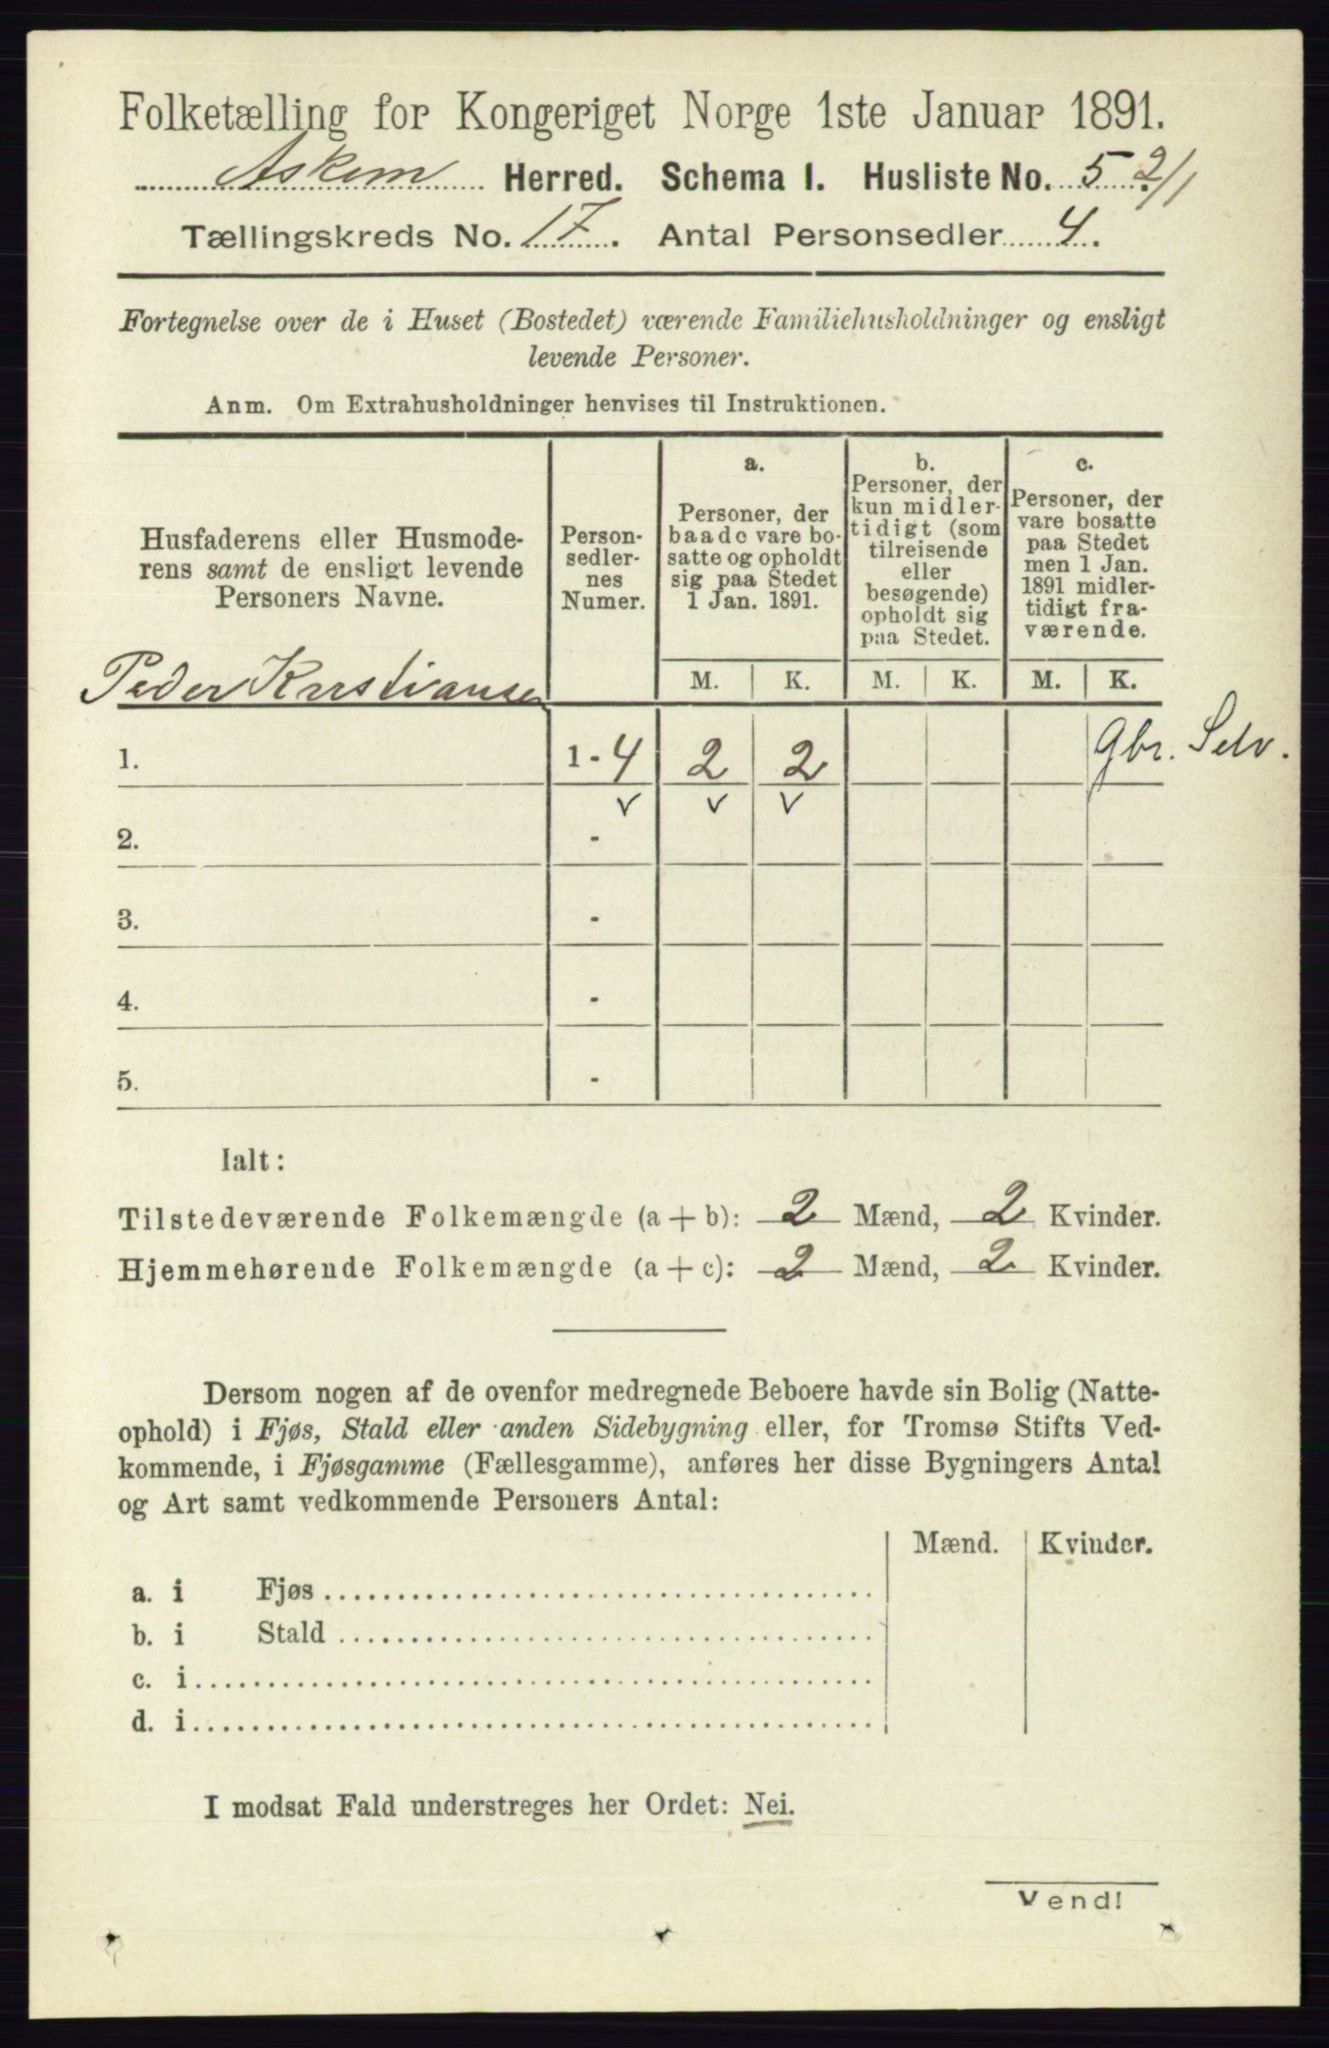 Folketælling for Kongeriget Norge 1ste Januar 1891.
Askim Herred. Schema I. Husliste No. 5 2/1
Tællingskreds No. 17. Antal Personsedler 4.
Fortegnelse over de i Huset (Bostedet) værende Familiehusholdninger og ensligt
levende Personer.
Anm. Om Extrahusholdninger henvises til Instruktionen.
Husfaderens eller Husmode-
rens samt de ensligt levende
Personers Navne.
Person-
sedler-
nes
Numer.
a.
Personer, der
baade vare bo-
satte og opholdt
sig paa Stedet
1 Jan. 1891.
b.
Personer, der
kun midler-
tidigt (som
tilreisende
eller
besøgende)
opholdt sig
paa Stedet.
c.
Personer, der
vare bosatte
paa Stedet
men 1 Jan.
1891 midler-
tidigt fra-
værende.
M. K. M. K. M. K.
Peder Kristiansen
1. 1 - 4 2 2 Gbr. Selv.
v v v
2. -
3. -
4. -
5. -
Ialt:
Tilstedeværende Folkemængde (a + b): 2 Mænd, 2 Kvinder.
Hjemmehørende Folkemængde (a + c): 2 Mænd, 2 Kvinder.
Dersom nogen af de ovenfor medregnede Beboere havde sin Bolig (Natte-
ophold) i Fjøs, Stald eller anden Sidebygning eller, for Tromsø Stifts Ved-
kommende, i Fjøsgamme (Fællesgamme), anføres her disse Bygningers Antal
og Art samt vedkommende Personers Antal:
Mænd. Kvinder.
a. i Fjøs
b. i Stald
c. i
d. i
I modsat Fald understreges her Ordet: Nei.
Vend!